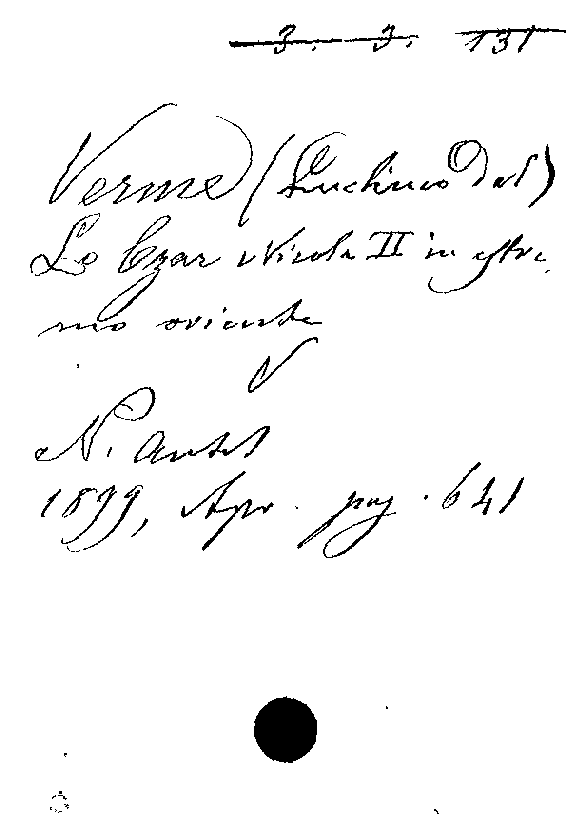 3. 3. 131
Verme (Luchino Dal)
Lo Czar Nicola II in estre,
mo oriente
N. Antol
1899, Apr. pag. 641